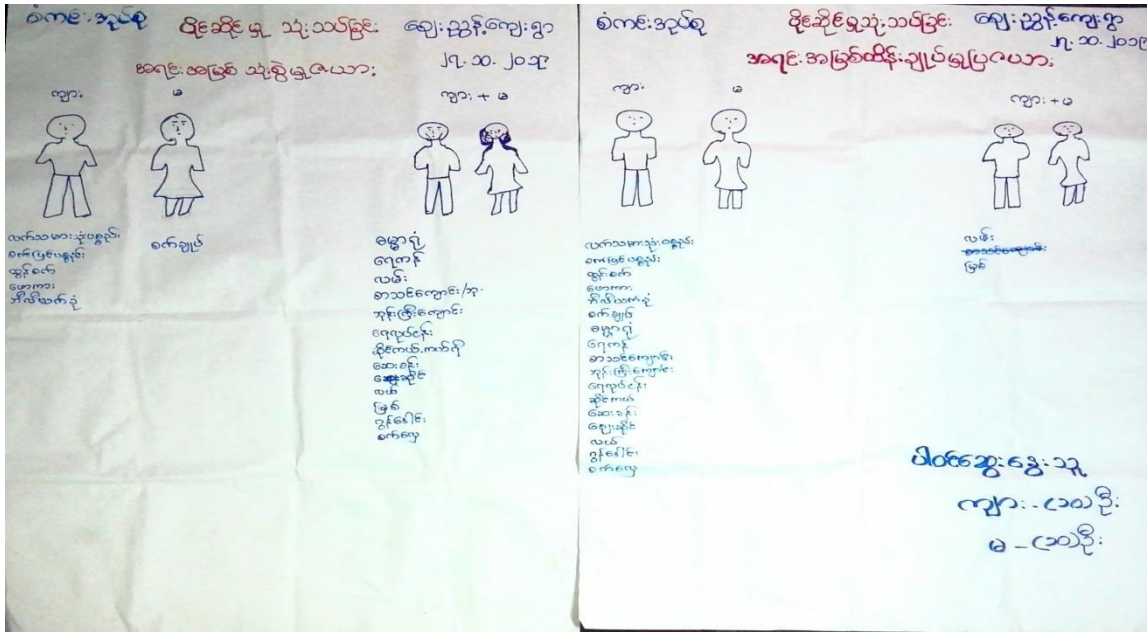 စံကင်းအုပ်စု ပိုင်ဆိုင်မှု သုံးသပ်ခြင်း ဈေးညွန့်ကျေးရွာ
အရင်းအမြစ် သုံးစွဲမှုဇယား
၂၇.၁၀.၂၀၁၉
ကျား
မ
ကျား + မ
လက်သမားသုံးပစ္စည်း
စက်ပြင်ပစ္စည်း
ထွန်စက်
ဖောကား
ဘိလိယက်ခုံ
စက်ချုပ်
ဓမ္မာရုံ
ရေကန်
လမ်း
စာသင်ကျောင်း/မူ.
ဘုန်းကြီးကျောင်း
ရေလုပ်ငန်း
ဆိုင်ကယ်.ကယ်ရီ
ဆေးခန်း
ဈေးဆိုင်
လယ်
မြစ်
ဂွန်ဒေါင်း
စက်လှေ
စံကင်းအုပ်စု ပိုင်ဆိုင်မှုသုံးသပ်ခြင်း ဈေးညွန့်ကျေးရွာ
၂၇.၁၀.၂၀၁၉
အရင်းအမြစ်ထိန်းချုပ်မှုပြဇယား
ကျား
မ
ကျား + မ
လက်သမားသုံးပစ္စည်း
စက်ပြင်ပစ္စည်း
ထွန်စက်
ဖောကား
ဘိလိယက်ခုံ
စက်ချုပ်
ဓမ္မာရုံ
ရေကန်
စာသင်ကျောင်း
ဘုန်းကြီးကျောင်း
ရေလုပ်ငန်း
ဆိုင်ကယ်
ဆေးခန်း
ဈေးဆိုင်
လယ်
ဂွန်ဒေါင်း
စက်လှေ
လမ်း
စာသင်ကျောင်း
မြစ်
ပါဝင်ဆွေးနွေးသူ
ကျား - (၁၀) ဦး
မ - (၁၀) ဦး